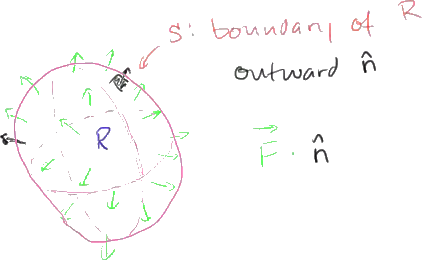 S: boundary of R
outward n̂
R
F⃗ · n̂